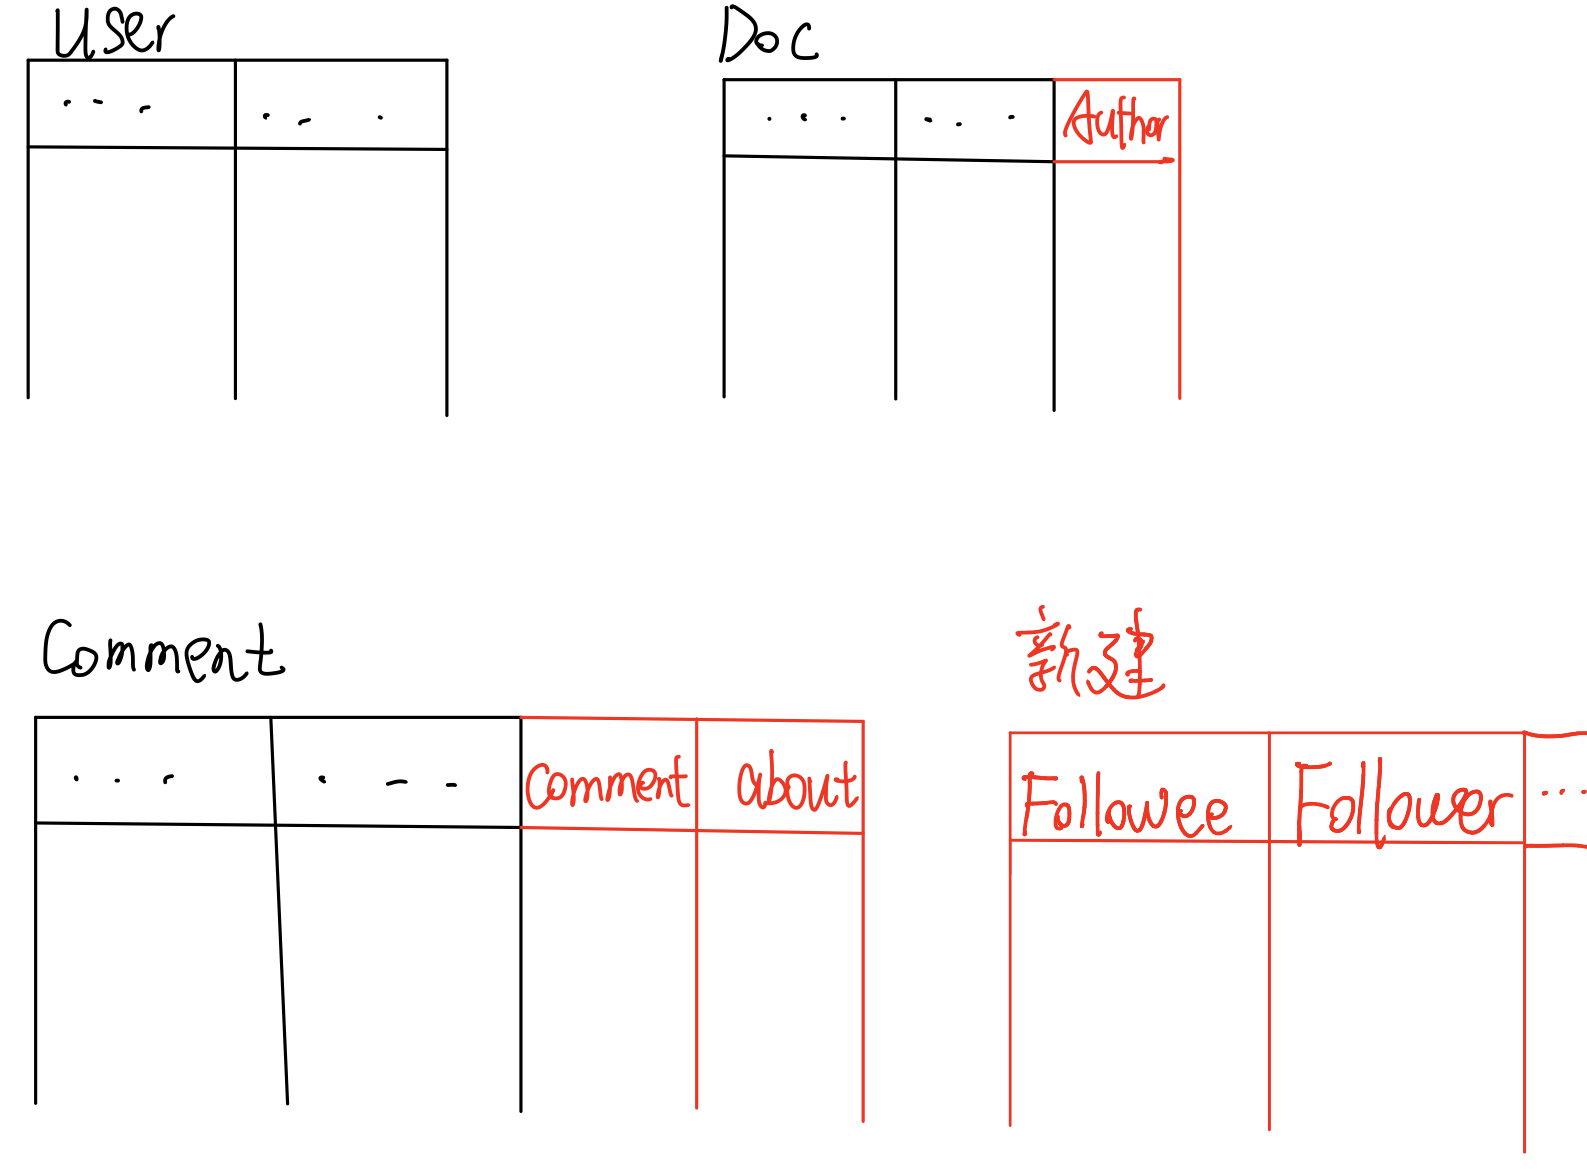 User
Doc
... ...
... ... Author
Comment
新建
... ... Comment about
Followee Follower ...